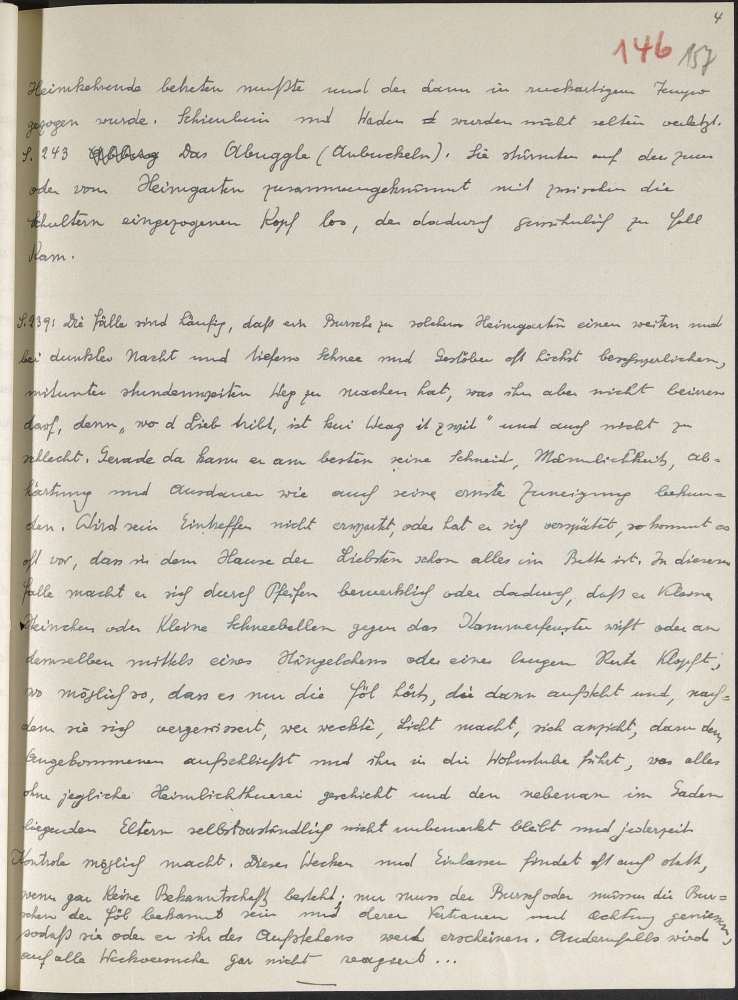 4
146 157
Heimkehrende betreten mußte und der dann in ruckartigem Tempo
gezogen wurde. Schienbein und Waden wurden nicht selten verletzt.
S. 243 Das Abuggle (Anbuckeln). Sie stürmten auf den zum
oder vom Heimgarten zusammengekrümmt mit zwischen die
Schultern eingezogenen Kopf los, der dadurch gewöhnlich zu Fall
kam.
S. 239: Die Fälle sind häufig, daß ein Bursche zu solchem Heimgarten einen weiten und
bei dunkler Nacht und tiefem Schnee und Gestöber oft höchst beschwerlichen,
mitunter stundenweiten Weg zu machen hat, was ihn aber nicht beirren
darf, denn "wo d Lieb tribt, ist kui Weag it z wit" und auch nicht zu
schlecht. Gerade da kann er am besten seine Schneid, Männlichkeit, Ab=
härtung und Ausdauer wie auch seine ernste Zuneigung bekun=
den. Wird sein Eintreffen nicht erwartet, oder hat er sich verspätet, so kommt es
oft vor, dass in dem Hause der Liebsten schon alles im Bette ist. In diesem
Falle macht er sich durch Pfeifen bemerklich oder dadurch, daß er kleine
Steinchen oder kleine Schneebellen gegen das Kammerfenster wift oder an
demselben mittels eines Hängelchens oder einer langen Rute klopft,
wo möglich so, dass es nur die Föl hört, die dann aufsteht und, nach=
dem sie sich vergewissert, wer weckte, Licht macht, sich anzieht, dann dem
Angekommenen aufschließt und ihn in die Wohnstube führt, was alles
ohne jegliche Heimlichthuerei geschieht und den nebenan im Gaden
liegenden Eltern selbstverständlich nicht unbemerkt bleibt und jederzeit
Kontrole möglich macht. Dieses Wecken und Einlassen findet oft auch statt,
wenn gar keine Bekanntschaft besteht; nur muss der Bursch oder müssen die Bur=
schen der Föl bekannt sein und deren Vertrauen und Achtung geniesen,
sodaß sie oder er ihr des Aufstehens werd erscheinen. Andernfalls wird
auf alle Weckversuche gar nicht reagiert...